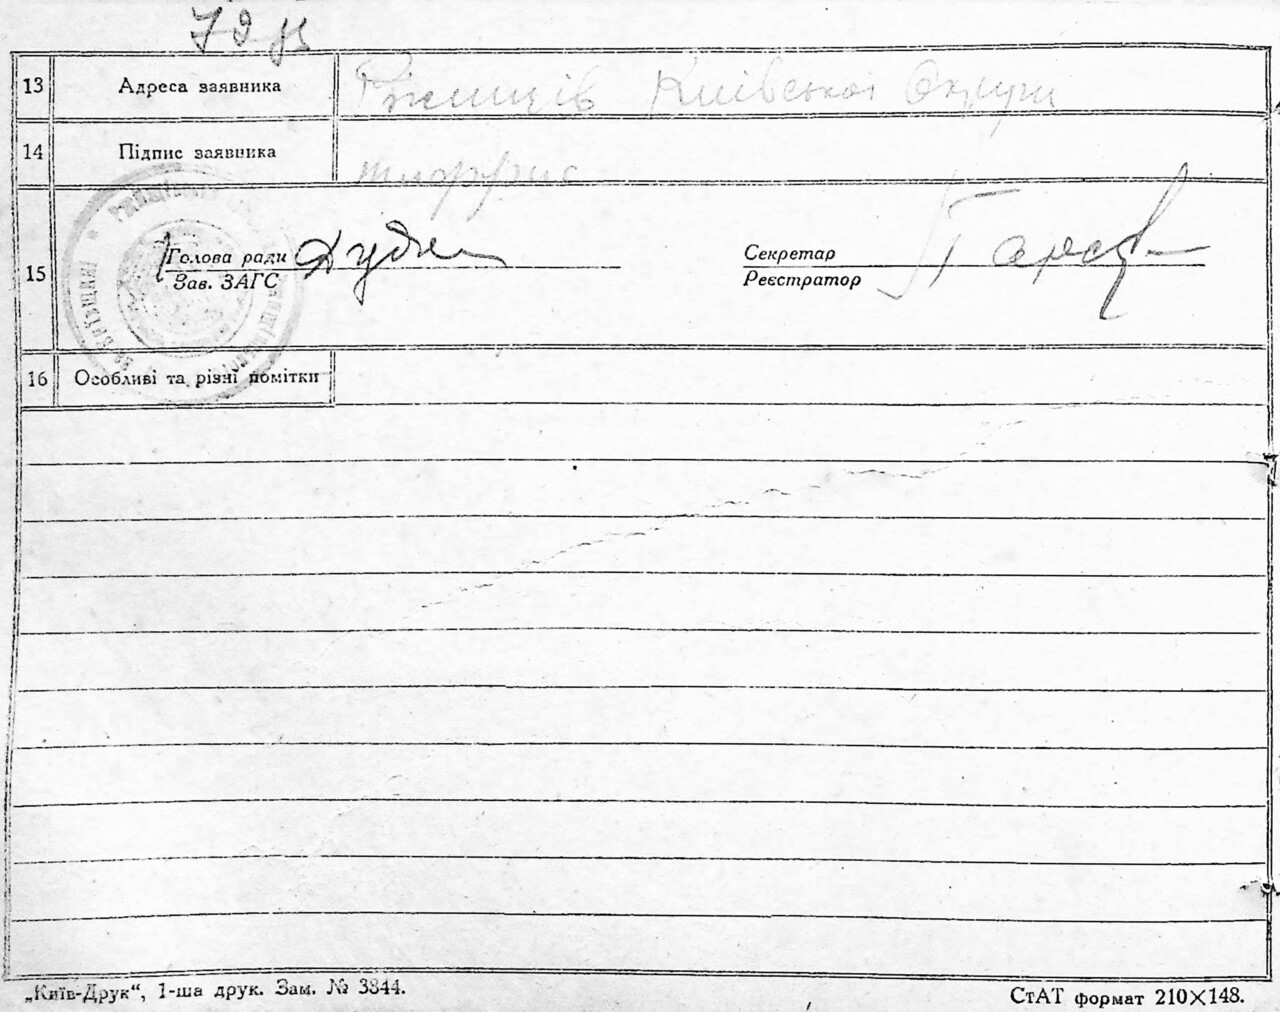 79
13 Адреса заявника Ржищів Київської Округи
14 Підпис заявника
15 Голова ради Секретар
Зав. ЗАГС Реєстратор
16 Особливі та різні помітки
„Київ-Друк“, 1-ша друк. Зам. № 3844. СтАТ формат 210×148.